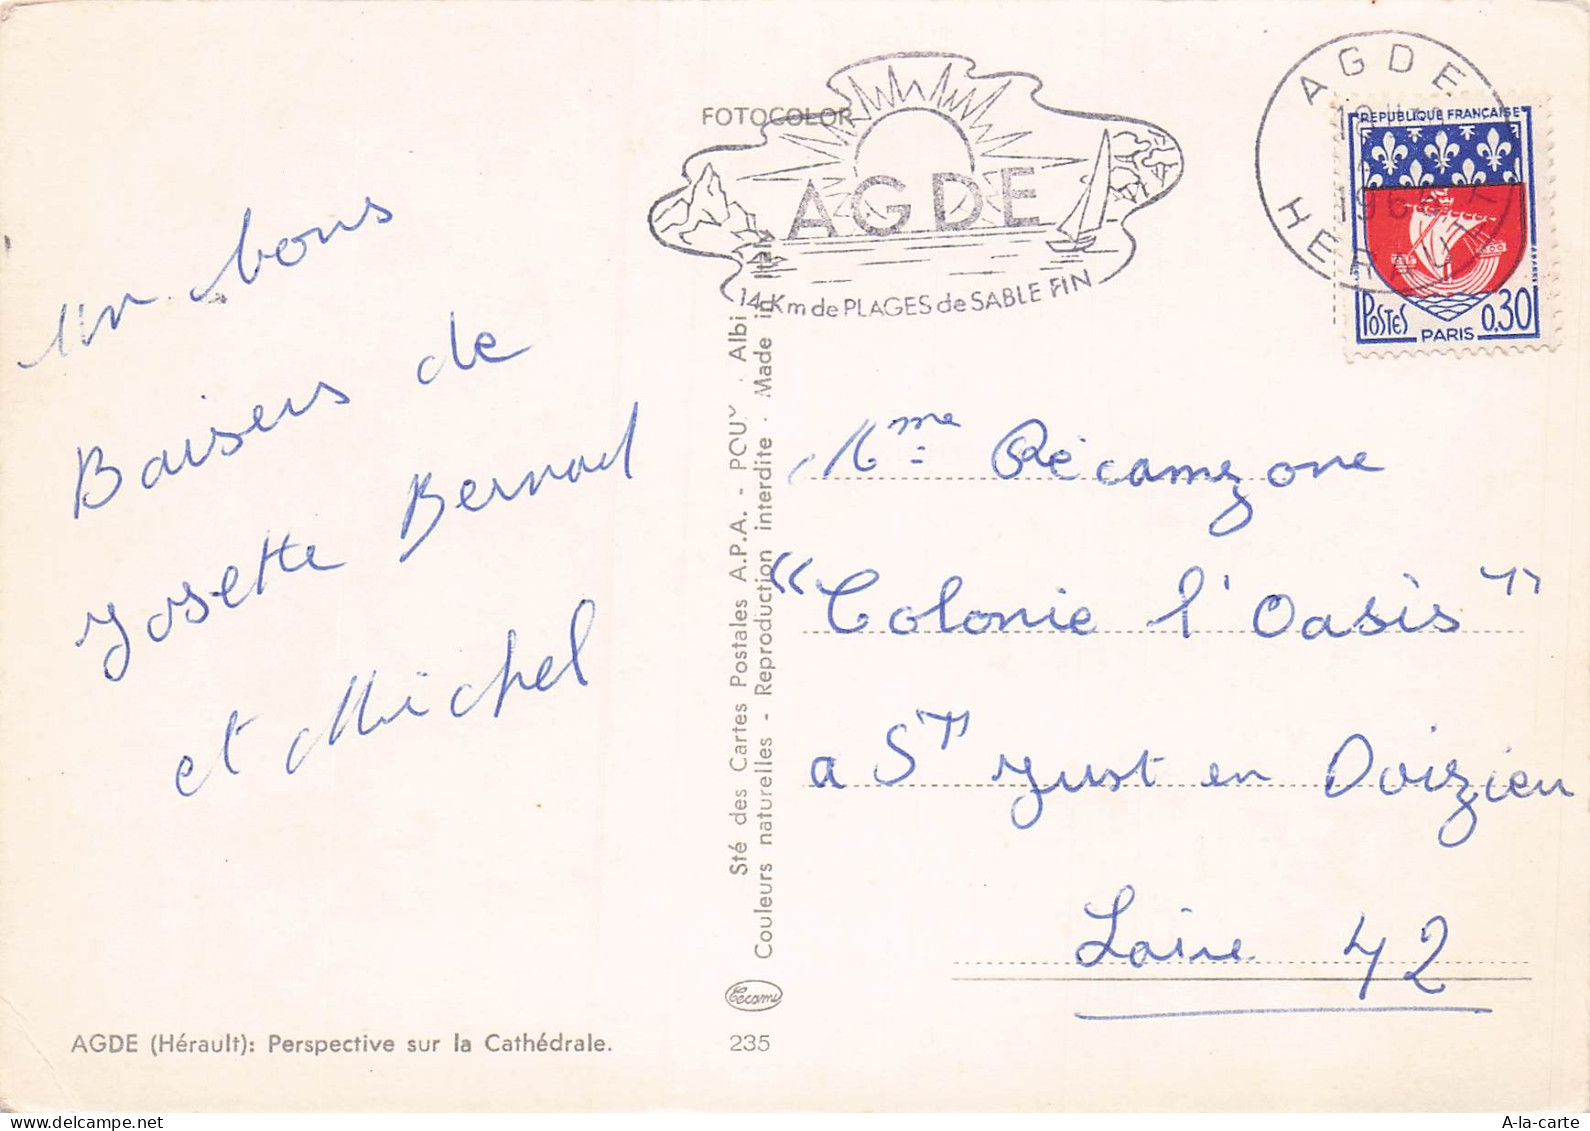 FOTOCOLOR
AGDE
14 Km de PLAGES de SABLE FIN
AGDE
HERAULT
REPUBLIQUE FRANÇAISE
POSTES
PARIS
0,30
un bons
Baisers de
Josette Bernard
et Michel
Mme Récamzone
"Colonie l'Oasis"
a St Just en Doizieu
Loire 42
Sté des Cartes Postales A.P.A. - POUX · Albi
Couleurs naturelles - Reproduction interdite · Made in Italy
AGDE (Hérault): Perspective sur la Cathédrale.
235
A-la-carte
www.delcampe.net